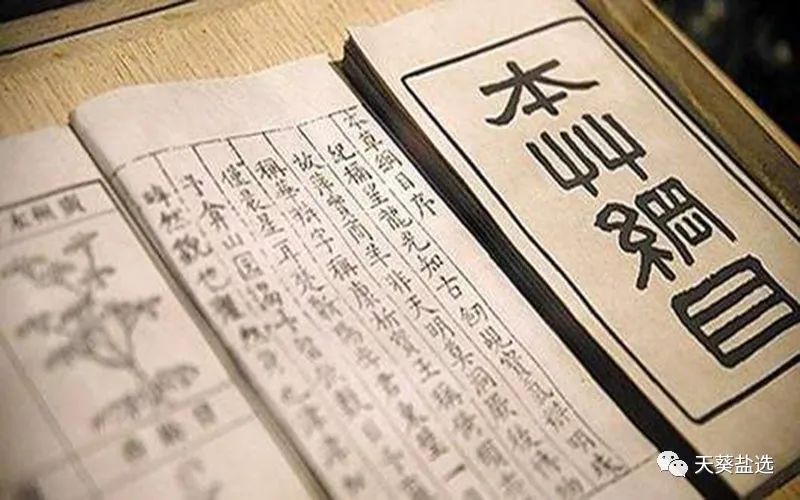 本草綱目
本草綱目序
紀稱望龍光知古劒覘寶氣辨明珠
故萍實商羊非天明莫洞厥後博物
稱華辨字稱康析寶玉稱倚頓
僅晨星耳楚蘄陽李君東璧
予弇山園謁予留飲數
睟然貌也癯然身也
天葵盐选